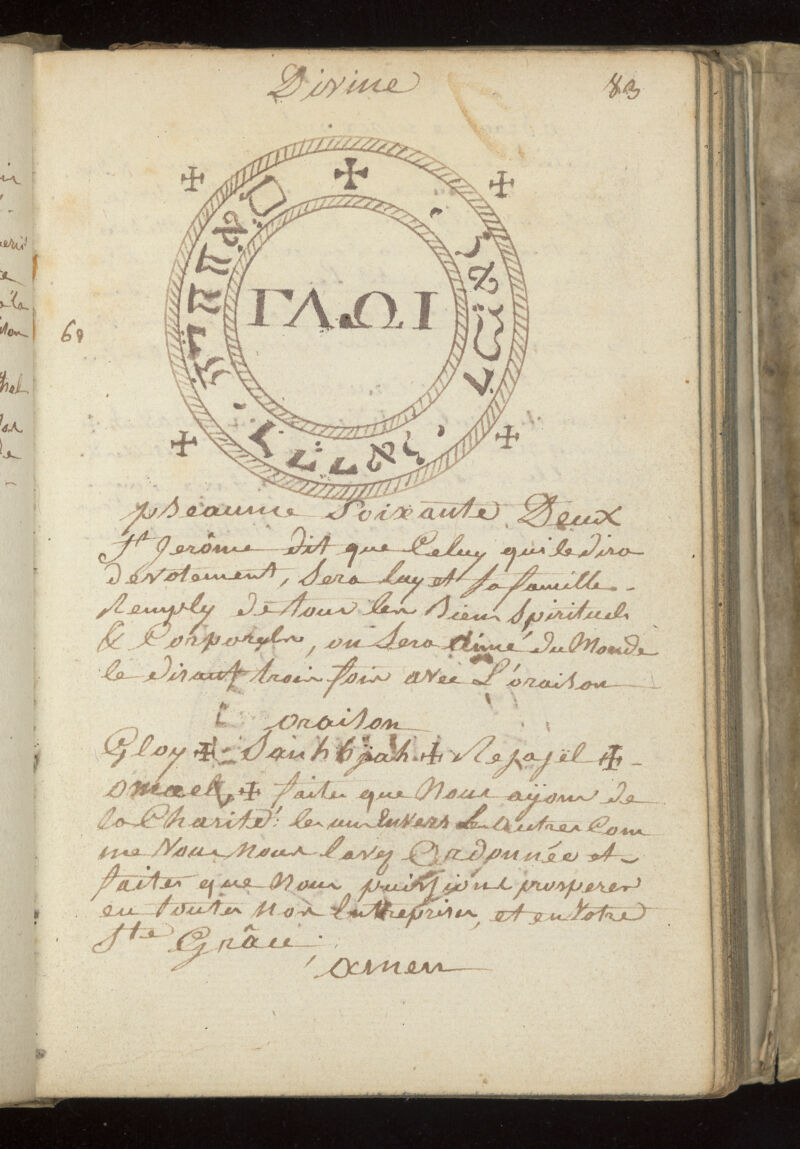 Divine 83
ΓΛΩΙ
pseaume Soixante Deux
St Jerôme dit que Celuy qui le dira
devotement, Sera luy et sa famille
Remply de tous les Biens Spirituels
& Corporels, on Sera aimé du Monde
le disant trois fois avec L'oraison
oraison
Eloy ✠ Sanhbjah ✠ Rejajël ✠
omaël ✠ faites que Nous ayons de
la Charité les uns Envers Les autres Com
me Vous Nous l'avez Ordonnée et
faites que Nous puissions prosperer
en toutes Nos Entreprises, et en Votre
Ste Grâce
amen